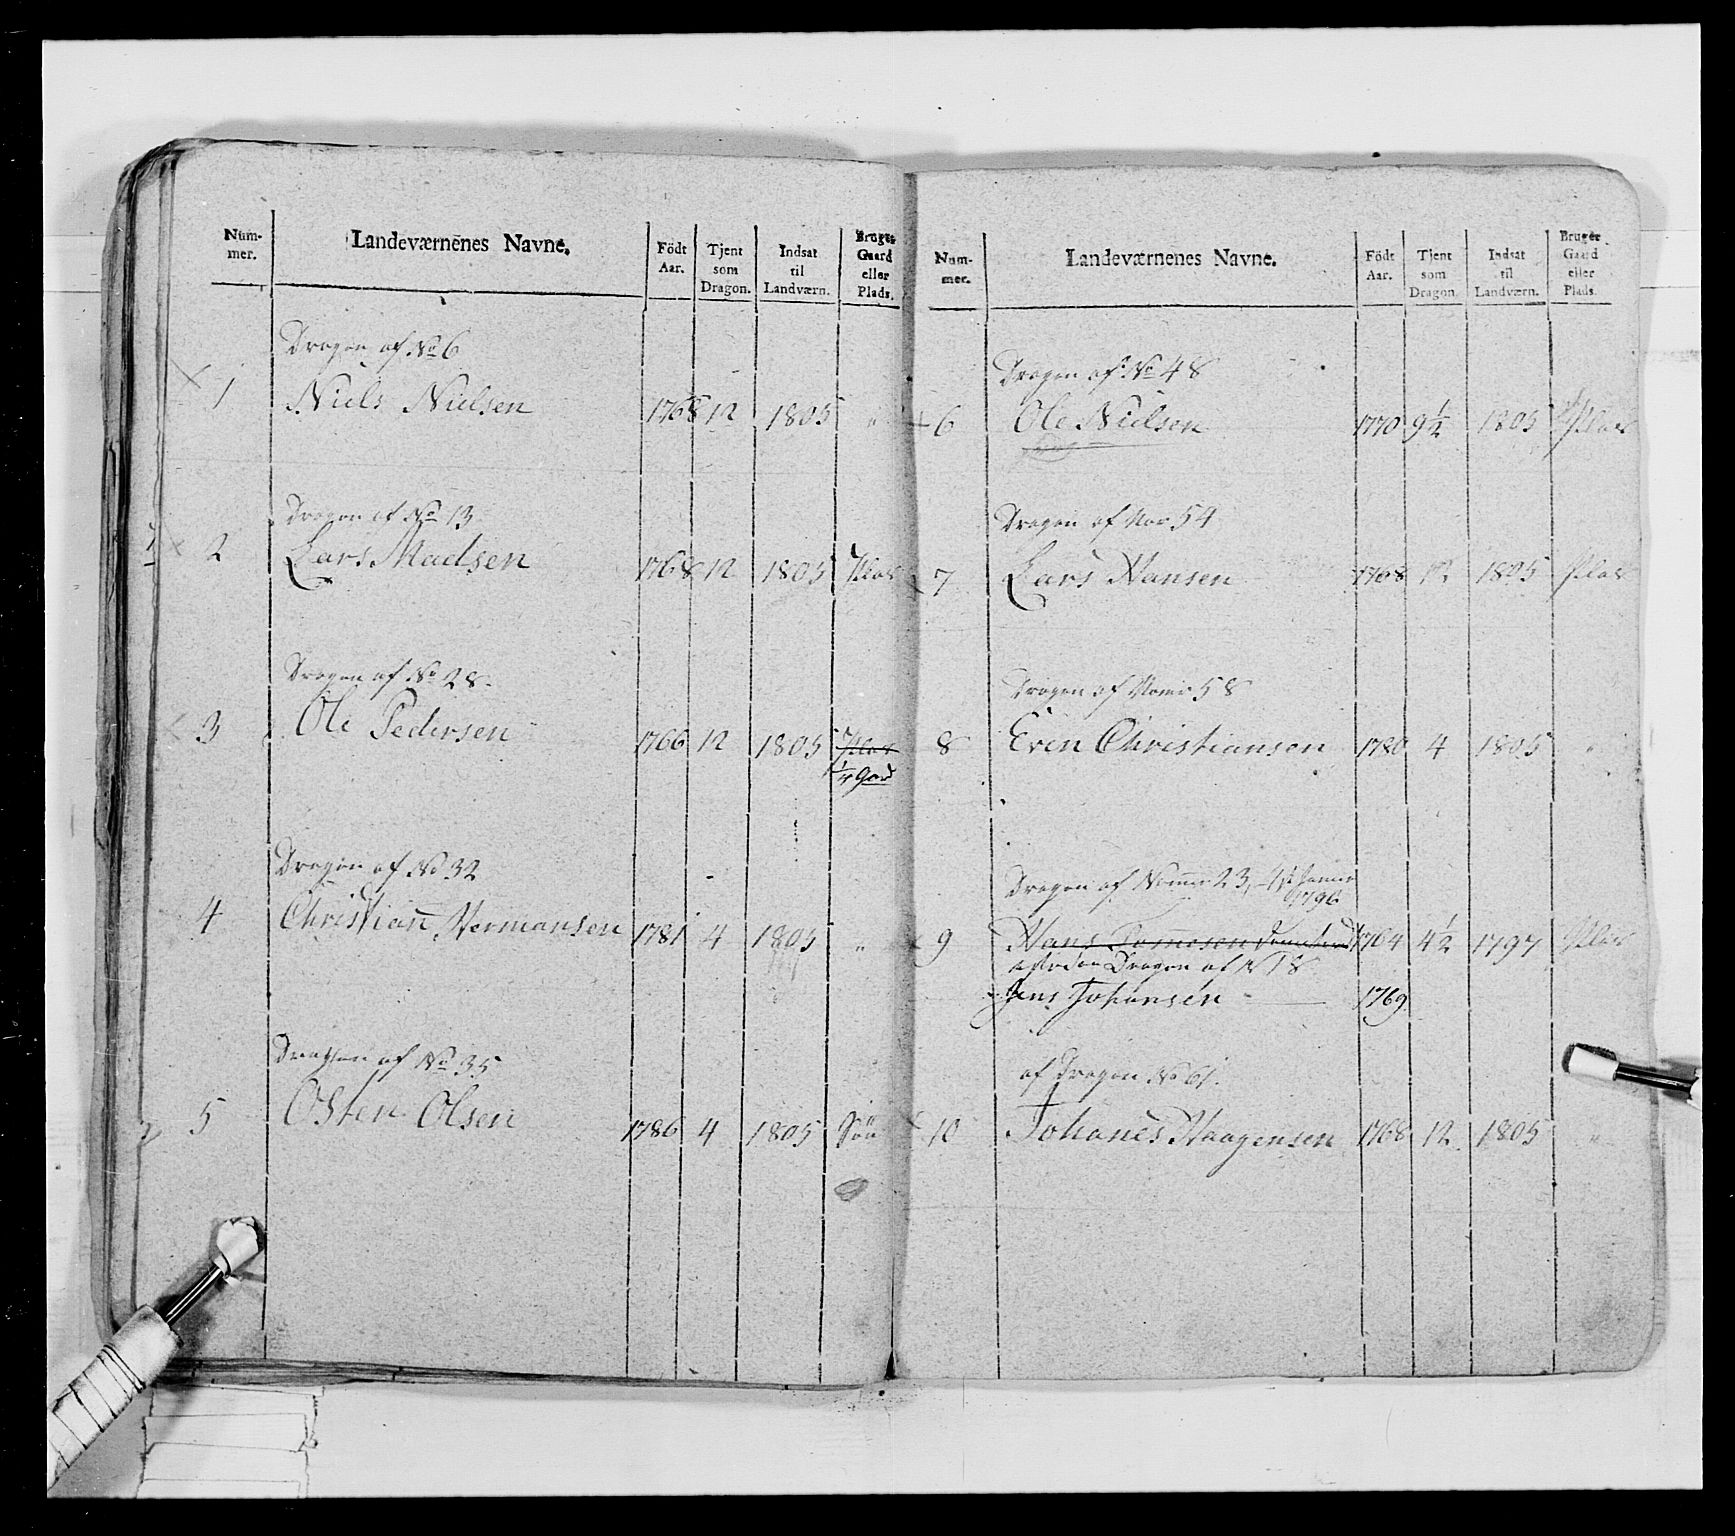 Num-mer. Landeværnenes Navne. Födt Aar. Tjent som Dragon. Indsat til Landværn. Bruger Gaard eller Plads.
Dragon af No 6
1 Niels Nielsen 1768 12 1805 "
Dragon af No 13
2 Lars Madsen 1768 12 1805 Plas
Dragon af No 28
3 Ole Pedersen 1766 12 1805 Plas
1/4 Gard
Dragon af No 32
4 Christian Hermansen 1781 4 1805 "
Dragon af No 35
5 Osten Olsen 1786 4 1805
Num-mer. Landeværnenes Navne. Födt Aar. Tjent som Dragon. Indsat til Landværn. Bruger Gaard eller Plads.
Dragon af No 48
6 Ole Nielsen 1770 9 1/2 1805 Plas
Dragon af 54
7 Lars Hansen 1768 12 1805 Plas
Dragon af 58
8 Even Christiansen 1780 4 1805 "
Dragon af 23
1796
9 Hans 1764 4 1/2 1797 Plas
Dragon af No 18
Jens Johansen 1769
af Dragon No 61
10 Johanes Haagensen 1768 12 1805 "